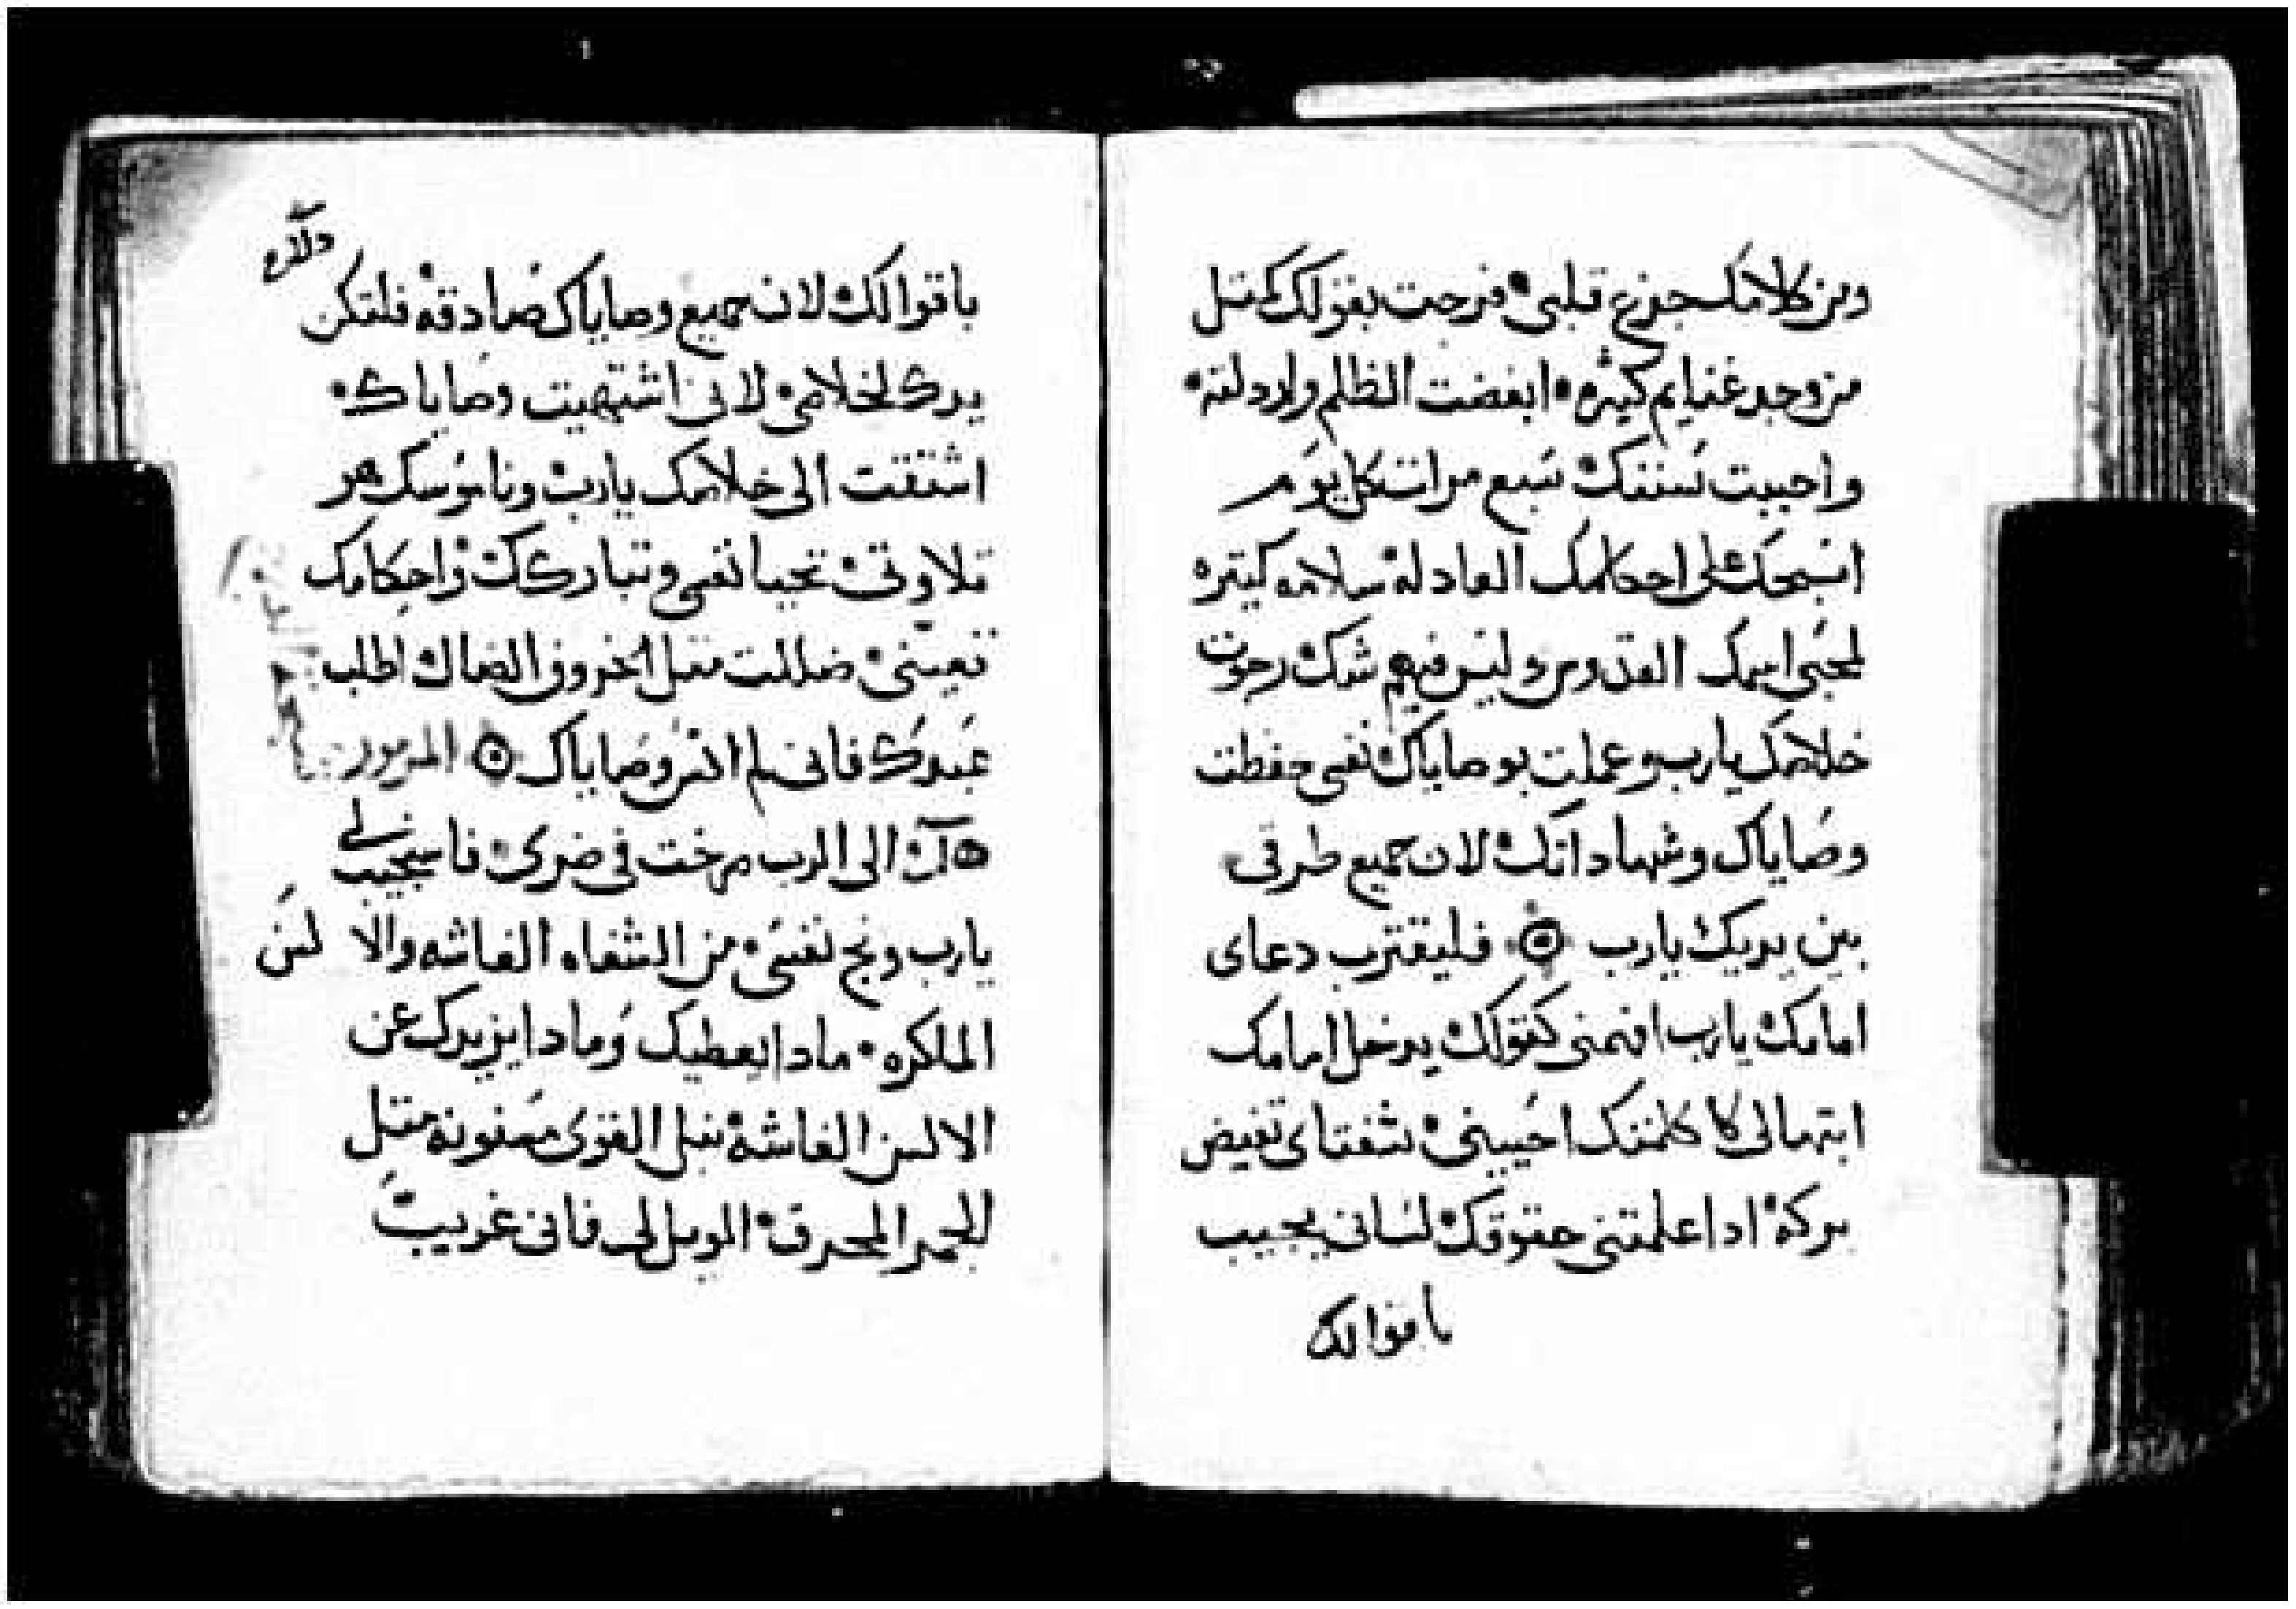 ومن كلامك جزع قلبي فرحت بقولك كمتل
من وجد غنايم كثيره ابغضت الظلم واردلته
واحببت سننك سبع مرات كل يوم
اسبحك على احكامك العادله سلامه كتيره
لمحبي اسمك القدوس وليس فيهم شك رجوت
خلاصك يارب وعملت بوصاياك نفسي حفظت
وصاياك وشهاداتك لان جميع طرقي
بين يديك يارب فليقترب دعاى
امامك يارب افهمني كقولك يدخل امامك
ابتهالي كا كلمتك احييني شفتاى تفيض
بركه ادا علمتني حقوقك لساني يجيب
باقوالك
باقوالك لان جميع وصاياك صادقه فلتكن
يدك لخلاصي لاني اشتهيت وصاياك
اشتقت الى خلاصك يارب وناموسك هو
تلاوتي تحيا نفسي وتباركك واحكامك
تعينني ضللت متل الخروف الضال اطلب
عبدك فاني لم انس وصاياك المزمور
الى الرب صرخت في ضرى فاستجيب لي
يارب ونج نفسي من الشفاه الغاشه والالسن
الماكره مادا يعطيك ومادا يزيدك عن
الالسن الغاشه نبل القوى مسنونه متل
الجمر المحرق الويل لي فاني غريب